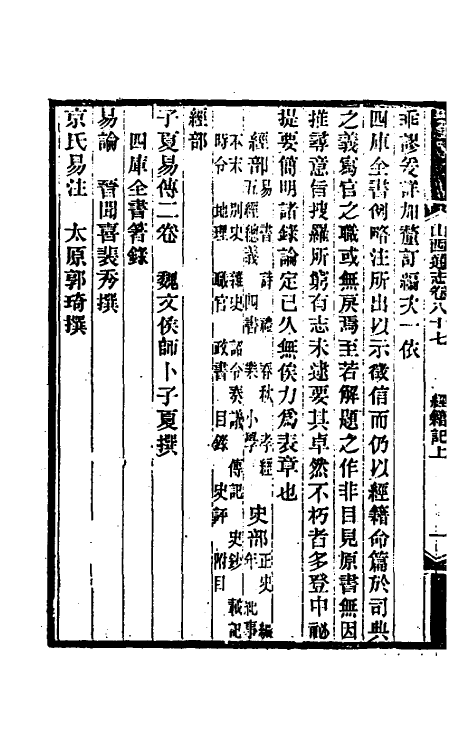 山西通志卷八十七 經籍記上 一
乖謬爰詳加釐訂編次一依
四庫全書例略注所出以示徵信而仍以經籍命篇於司典
之義寫官之職或無戾焉至若解題之作非目見原書無因
推尋意旨搜羅所窮有志未逮要其卓然不朽者多登中祕
提要簡明諸錄論定已久無俟力為表章也
經部易 書 詩 禮 春秋 孝經 史部正史 編
五經總義 四書 樂 小學 年 紀事
本末 別史 雜史 詔令奏議 傳記 史鈔 載記
時令 地理 職官 政書 目錄 史評 附目
經部
子夏易傳二卷 魏文侯師卜子夏撰
四庫全書著錄
易論 晉聞喜裴秀撰
京氏易注 太原郭琦撰